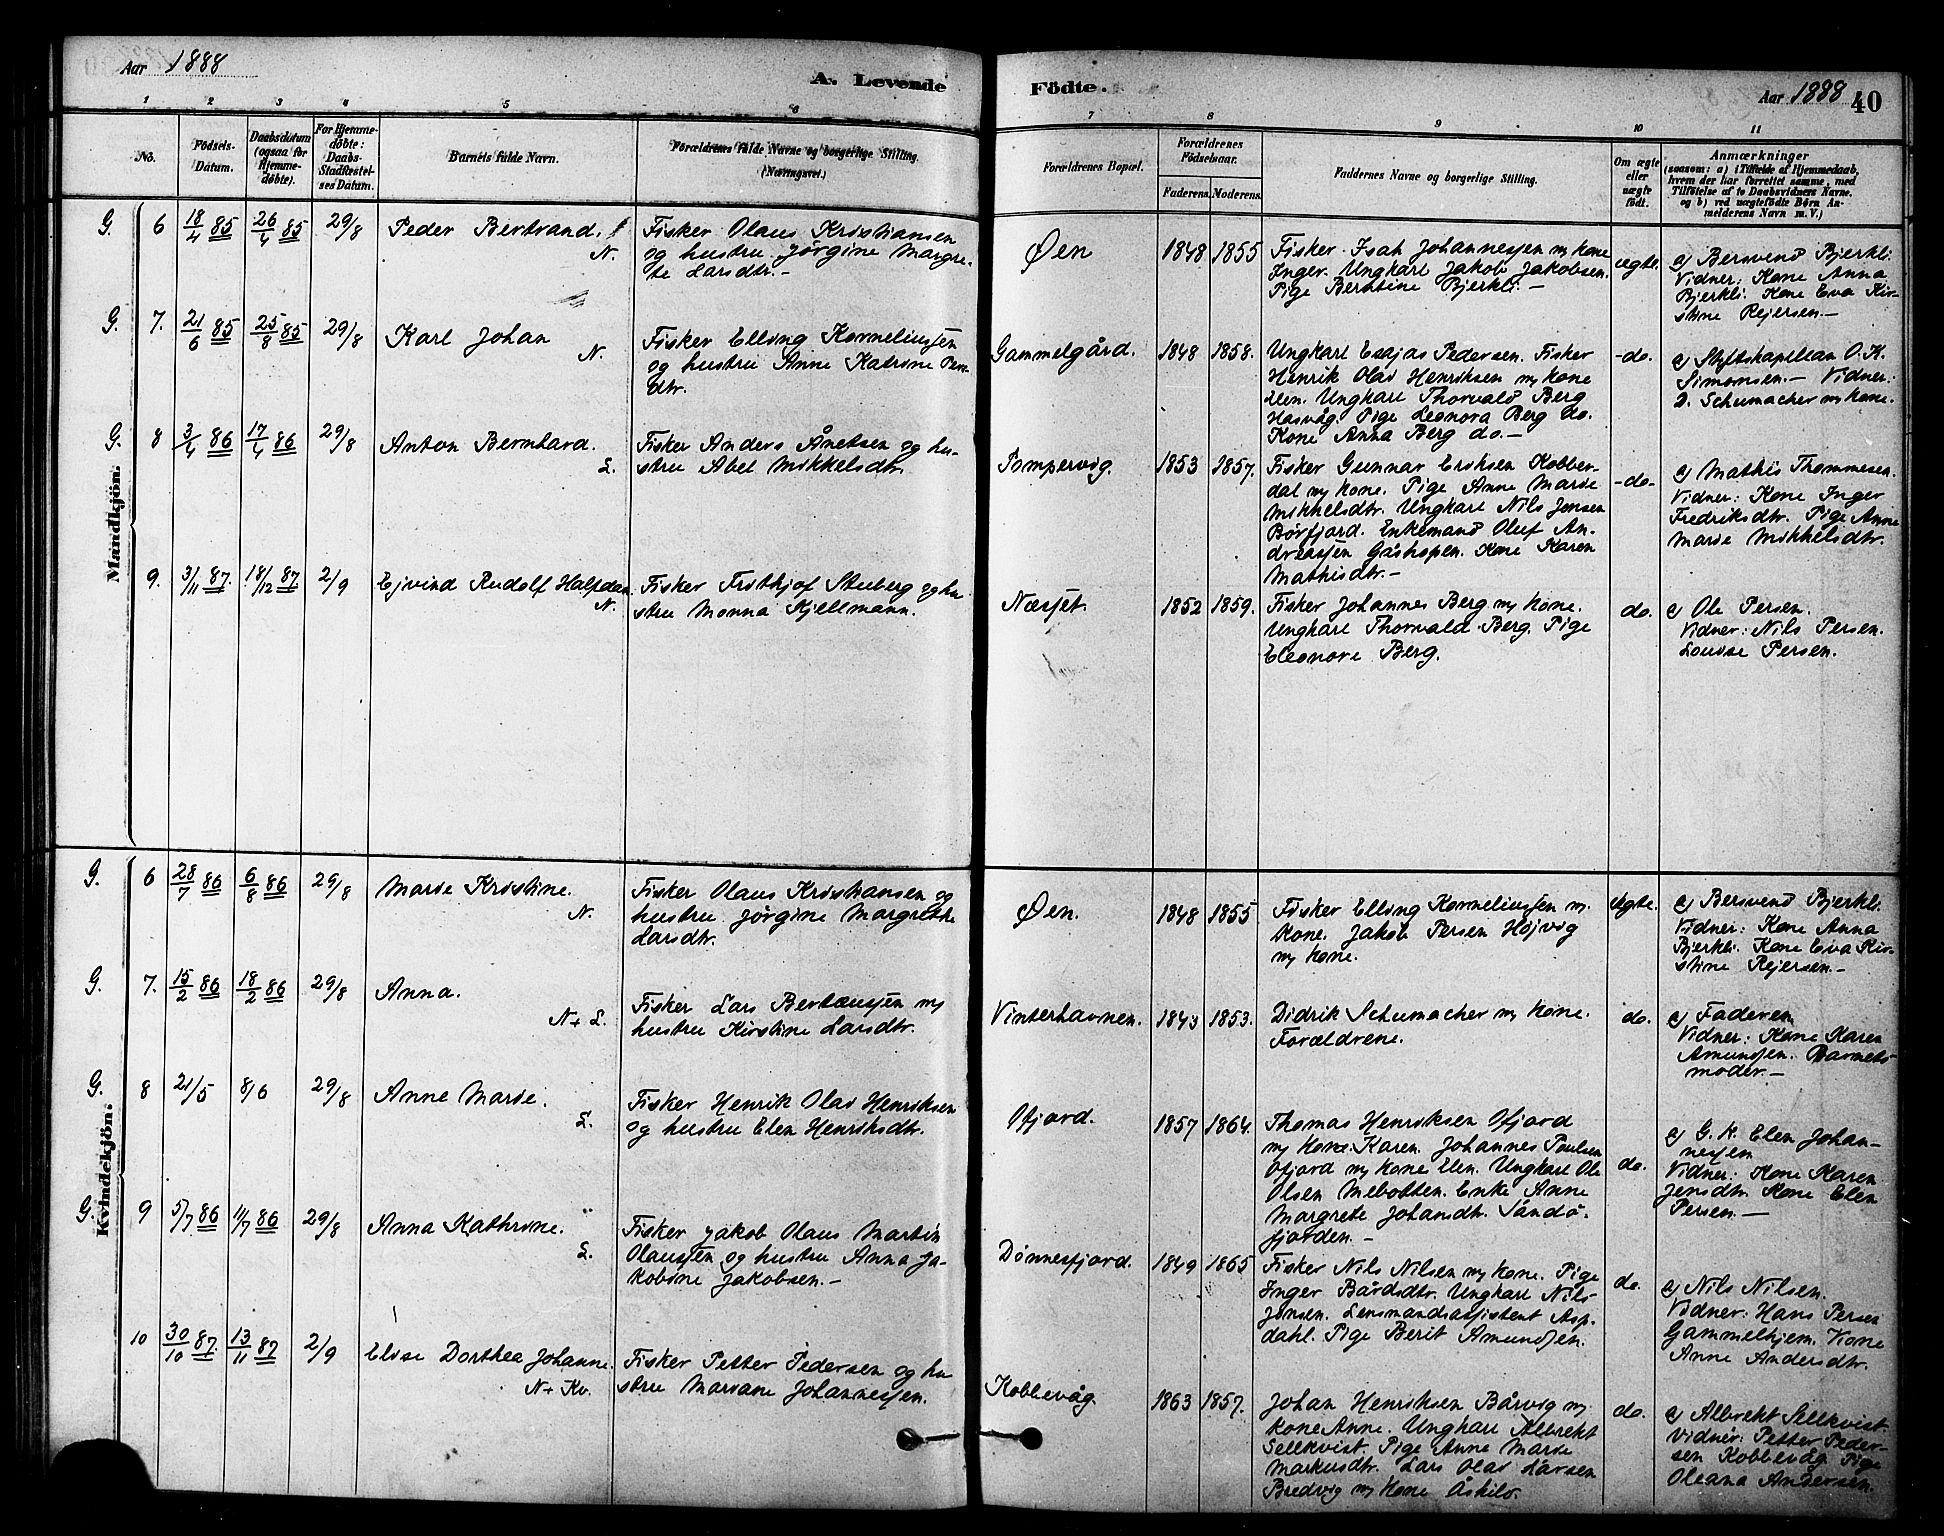 Aar 1888
A. Levende
1 2 3 4 5 6
No.
Födsels-Datum.
Daabsdatum (ogsaa for Hjemmedöbte).
For Hjemmedöbte: Daabs-Stadfæstelses Datum.
Barnets fulde Navn.
Forældrenes fulde Navne og borgerlige Stilling. (Næringsvei.)
Mandkjön.
G. 6 18/4 85 26/4 85 29/8 Peder Bertrand. N.
Fisker Olaus Kristiansen
og hustru Jørgine Margre-
te Larsdtr. -
G. 7. 21/6 85 25/8 85 29/8 Karl Johan N.
Fisker Elling Korneliussen
og hustru Anne Katrine Pers-
dtr.
G. 8 3/4 86 17/4 86 29/8 Anton Bernhard. L.
Fisker Anders Ånetsen og hu-
stru Abel Mikkelsdtr.
9. 3/11 87. 18/12 87 2/9 Ejvind Rudolf Halfdan N.
Fisker Frithjof Stuberg og hu
stru Monna Kjellmann.
Kvindekjön.
G. 6 28/7 86 6/8 86 29/8 Marie Kristine. N.
Fisker Olaus Kristiansen og
hustru Jørgine Margrethe
Larsdtr.
G. 7. 15/2 86 18/2 86 29/8 Anna. N+L.
Fisker Lars Berteussen m/
hustru Kirstine Larsdtr.
G. 8 21/5 8/6 29/8 Anne Marie. L.
Fisker Henrik Olai Henriksen
og hustru Elen Henriksdtr.
G. 9 5/7 86 11/7 86 29/8 Anna Kathrine. L.
Fisker Jakob Olaus Martin
Olaussen og hustru Anna Ja-
kobine Jakobsen. -
10 30/10 87. 13/11 87 2/9 Elise Dorthea Johanne. N+Kv.
Fisker Petter Pedersen og hu
stru Mariane Johannessen.
Födte.
Aar 1888 40
7 8 9 10 11
Forældrenes Bopæl.
Forældrenes Födselsaar.
Faderens. Moderens.
Faddernes Navne og borgerlige Stilling.
Om ægte eller uægte födt.
Anmærkninger
(saasom: a) i Tilfælde af Hjemmedaab,
hvem der har forrettet samme, med
Tilföielse af to Daabsvidners Navne.
og b) ved uægtefödte Börn An-
melderens Navn m. V.)
Øen 1848 1855
Fisker Isak Johannessen m/ Kone
Inger. Ungkarl Jakob Jakobsen.
Pige Berntine Bjerkli. -
ægte.
a) Bersvend Bjerkli.
Vidner: Kone Anna
Bjerkli. Kone Eva Kir-
stine Rejersen. -
Gammelgård. 1848 1858.
Ungkarl Esajas Pedersen. Fisker
Henrik Olai Henriksen m/ Kone
Elen. Ungkarl Thorvald Berg
Hasvåg. Pige Leonora Berg do.
Kone Anna Berg do. -
-do.
a) Stiftskapellan O. K.
Simonsen. - Vidner:
D. Schumacher m/ Kone.
Pompervig. 1853 1857.
Fisker Gunnar Eriksen Kobber-
dal m/ Kone. Pige Anne Marie
Mikkelsdtr. Ungkarl Nils Jensen
Børfjord. Enkemand Oluf An-
dreassen Gåshopen. Kone Karen
Mathisdtr. -
-do-
a) Mathis Thommesen.
Vidner: Kone Inger
Fredriksdtr. Pige Anne
Marie Mikkelsdtr.
Næsset. 1852 1859.
Fisker Johannes Berg m/ Kone.
Ungkarl Thorvald Berg. Pige
Eleonore Berg.
do.
a) Ole Persen.
Vidner: Nils Persen.
Louise Persen.
Øen. 1848 1855
Fisker Elling Korneliussen m.
Kone. Jakob Persen Højvig
m/ Kone.
Ægte.
a) Bersvend Bjerkli.
Vidner: Kone Anna
Bjerkli. Kone Eva Kir-
stine Rejersen. -
Vinterhavnen. 1843 1853.
Didrik Schumacher m/ Kone.
Forældrene.
do.
a) Faderen
Vidner: Kone Karen
Amundsen. Barnets
moder. -
Ofjord. 1857 1864.
Thomas Henriksen Ofjord
m/ Kone Karen. Johannes Paulsen
Ofjord m/ Kone Elen. Ungkarl Ole
Olsen Mebotten. Enke Anne
Margrete Johansdtr. Sandø-
fjorden. -
do.
a) G. K. Elen Johan-
nessen
Vidner: Kone Karen
Jensdtr. Kone Elen
Persen. -
Dønnesfjord. 1849 1865
Fisker Nils Nilsen m/ Kone. Pige
Inger Bårdsdtr. Ungkarl Nils
Jensen. Lensmandsassistent Asp-
dahl. Pige Berit Amundsen.
do.
a) Nils Nilsen.
Vidner: Hans Persen
Gammelhjem. Kone
Anne Andersdtr.
Kobbevåg. 1863 1857.
Johan Henriksen Bårvig m/
Kone Anne. Ungkarl Albrekt
Sellkvist. Pige Anne Marie
Markusdtr. Lars Olai Larsen
Bredvig m/ Kone Åshild.
do.
a) Albrekt Sellkvist.
Vidner: Petter Peder-
sen Kobbevåg. Pige
Oleana Andersen.